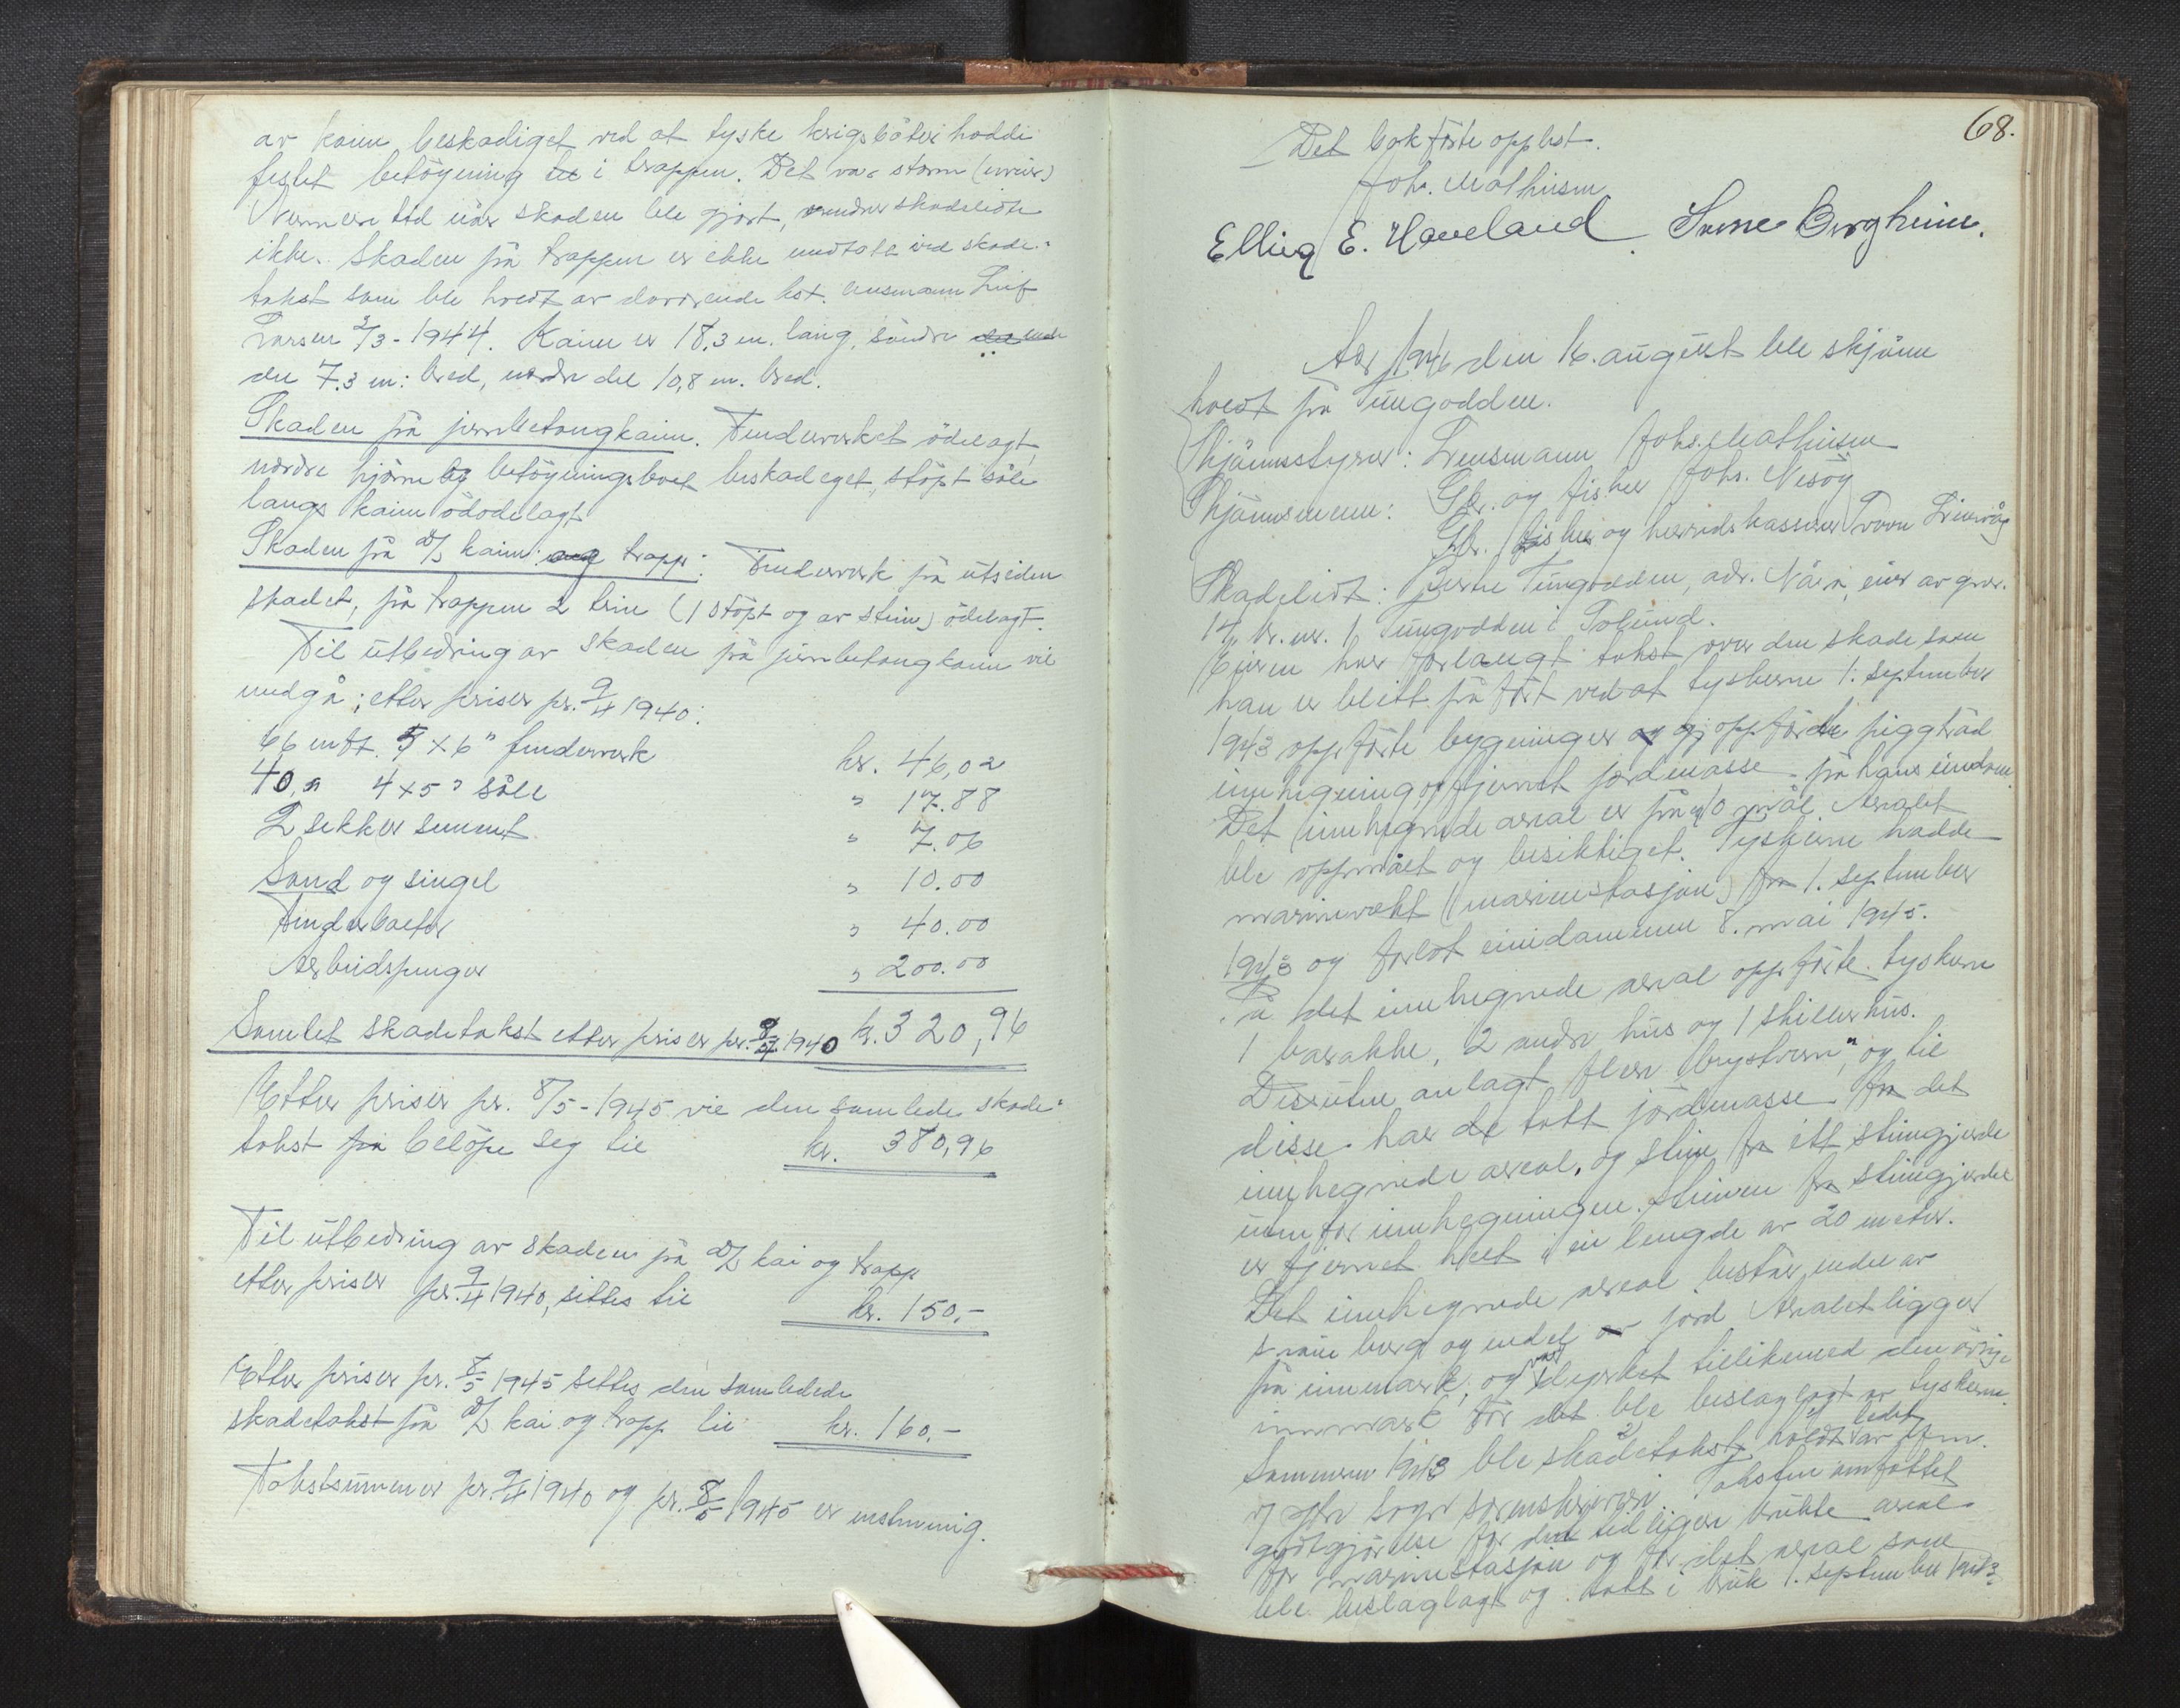 av kaien beskadiget ved at tyske krigsbåter hadde
festet betöyning i trappen. Det var storm
Nærmere tid når skaden ble gjort, skadelidte
ikke. Skaden på trappen er ikke medtatt ved skade-
takst som ble holdt av daværende kst. lensmann Leif
Larsen 3/3-1944. Kaien er 18,3 m. lang, söndre
del 7.3 m: bred, nordre del 10,8 m. bred.
Skaden på jernbetongkaien. Fenderverket ödelagt,
nordre hjörne og betöyningsbolt beskadeget, stöpt söle
langs kaien ödelagt
Skaden på d/s kaien og trapp: Fenderverk på utsiden
skadet, på trappen 2 trin (1 stöpt og av stein) ödelagt.
Til utbedring av skaden på jernbetongkaien vil
medgå; etter priser pr. 9/4 1940:
66 mtr. 5 x 6" fenderverk kr. 46,02
40 " 4 x 5" söle " 17.88
2 sekker sement " 7.06
Sand og singel " 10.00
Fenderbolter " 40.00
Arbeidspenger " 200.00
Samlet skadetakst etter priser pr. 9/4. 1940 kr. 320,96
Etter priser pr. 8/5-1945 vil den samlede skade-
takst på belöpe seg til kr. 380,96
Til utbedring av skaden på d/s kai og trapp
etter priser pr. 9/4 1940, settes til kr. 150.-
Etter priser pr. 8/5 1945 settes den samlede
skadetakst på d/s kai og trapp til kr. 160.-
Takstsummer pr. 9/4 1940 og pr. 8/5 1945 er enstemmig.
68.
Det bokförte opplest.
Johs. Mathisen
Elling E. Haveland. Sverre Bergheim.
Aar 1946 den 16. august ble skjönn
holdt på Tungodden.
Skjönnsstyrer: Lensmann Johs. Mathisen
Skjönnsmenn: Gbr. og fisker Johs. Nesöy
Gbr. fisker og herredskasserer
Skadelidt: Tungodden, adr. Nåra, eier av gnr.
14, br.nr. 1, Tungodden i Solund.
Eieren har forlangt takst over den skade som
han er blitt på fört ved at tyskerne 1. september
1943 oppförte bygninger og oppförte piggtråd
innhegning, og fjernet jordmasse på hans eiendom
Det innhegnede areal er på 10 mål. Arealet
ble oppmålt og besiktiget. Tyskerne hadde
marinevakt (marinestasjon) fra 1. september
1943 og forlot eiendommen 8. mai 1945.
På det innhegnede areal oppförte tyskerne
1 barakke, 2 andre hus og 1 skillerhus.
Dessuten anlagt flere "brystvern", og til
disse har de tatt jordmasse fra det
innhegnede areal, og stein fra ett steingjerde
utenfor innhegningen. Steinen fra steingjerdet
er fjernet helt i en lengde av 20 meter.
Det innhegnede areal består endel av
berg og endel av jord Arealet ligger
på innmark, og var dyrket tillikemed den övrige
innmark för det ble beslaglagt av tyskerne.
Sommeren 1943 ble skadetakst holdt ledet av
Ytre Sogn sorenskriveri. Taksten omfattet
godtgjörelse for den tidligere brukte areal
for marinestasjon og for det areal som
ble beslaglagt og tatt i bruk 1. september 1943.